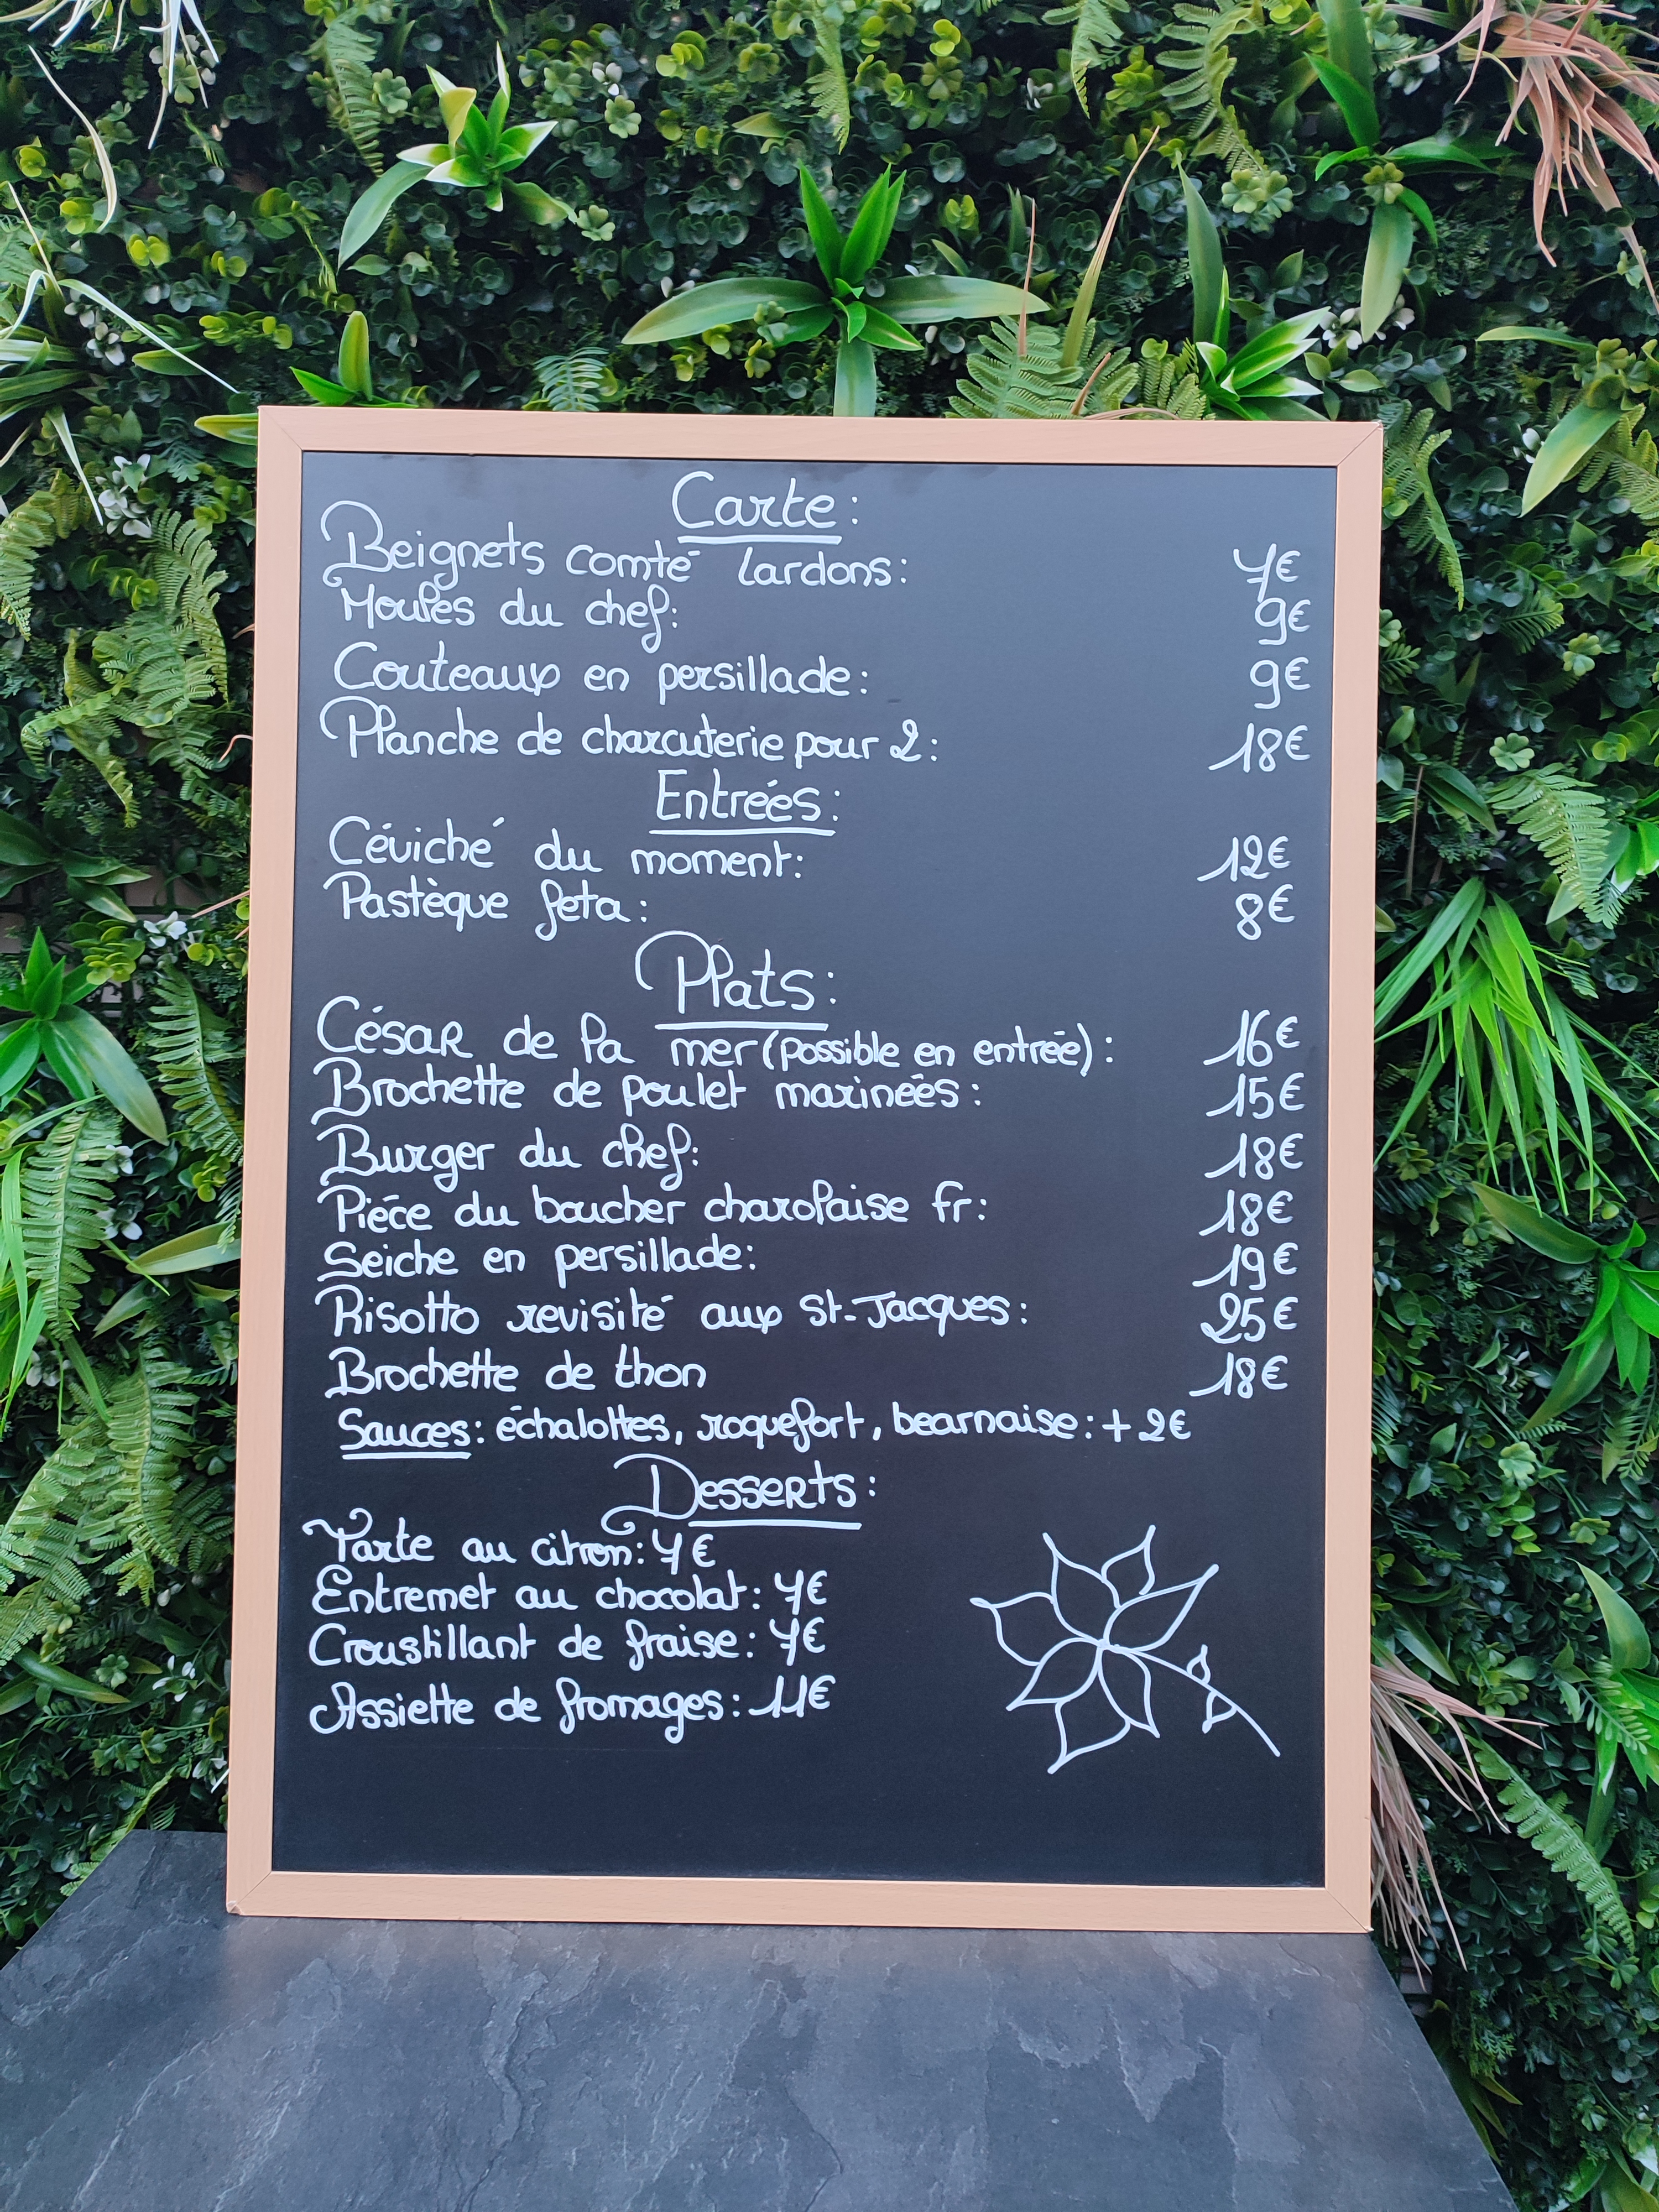 Carte:
Beignets comté lardons: 7€
Moules du chef: 9€
Couteaux en persillade: 9€
Planche de charcuterie pour 2: 18€
Entrées:
Céviché du moment: 12€
Pastèque feta: 8€
Plats:
César de la mer (possible en entrée): 16€
Brochette de poulet marinées: 15€
Burger du chef: 18€
Piéce du boucher charolaise fr: 18€
Seiche en persillade: 19€
Risotto revisité aux St-Jacques: 25€
Brochette de thon 18€
Sauces: échalottes, roquefort, bearnaise: + 2€
Desserts:
Tarte au citron: 7€
Entremet au chocolat: 7€
Croustillant de fraise: 7€
Assiette de fromages: 11€